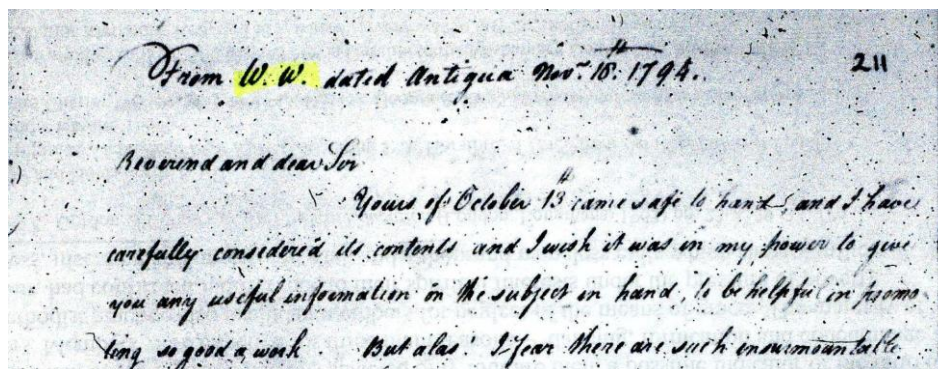 From W. W. dated Antigua Novr. 18th 1794.
211
Reverend and dear Sir
Yours of October 13th came safe to hand, and I have
carefully considered its contents and I wish it was in my power to give
you any useful information on the subject in hand, to be helpful in promo
ting so good a work. But alas! I fear there are such insurmountable